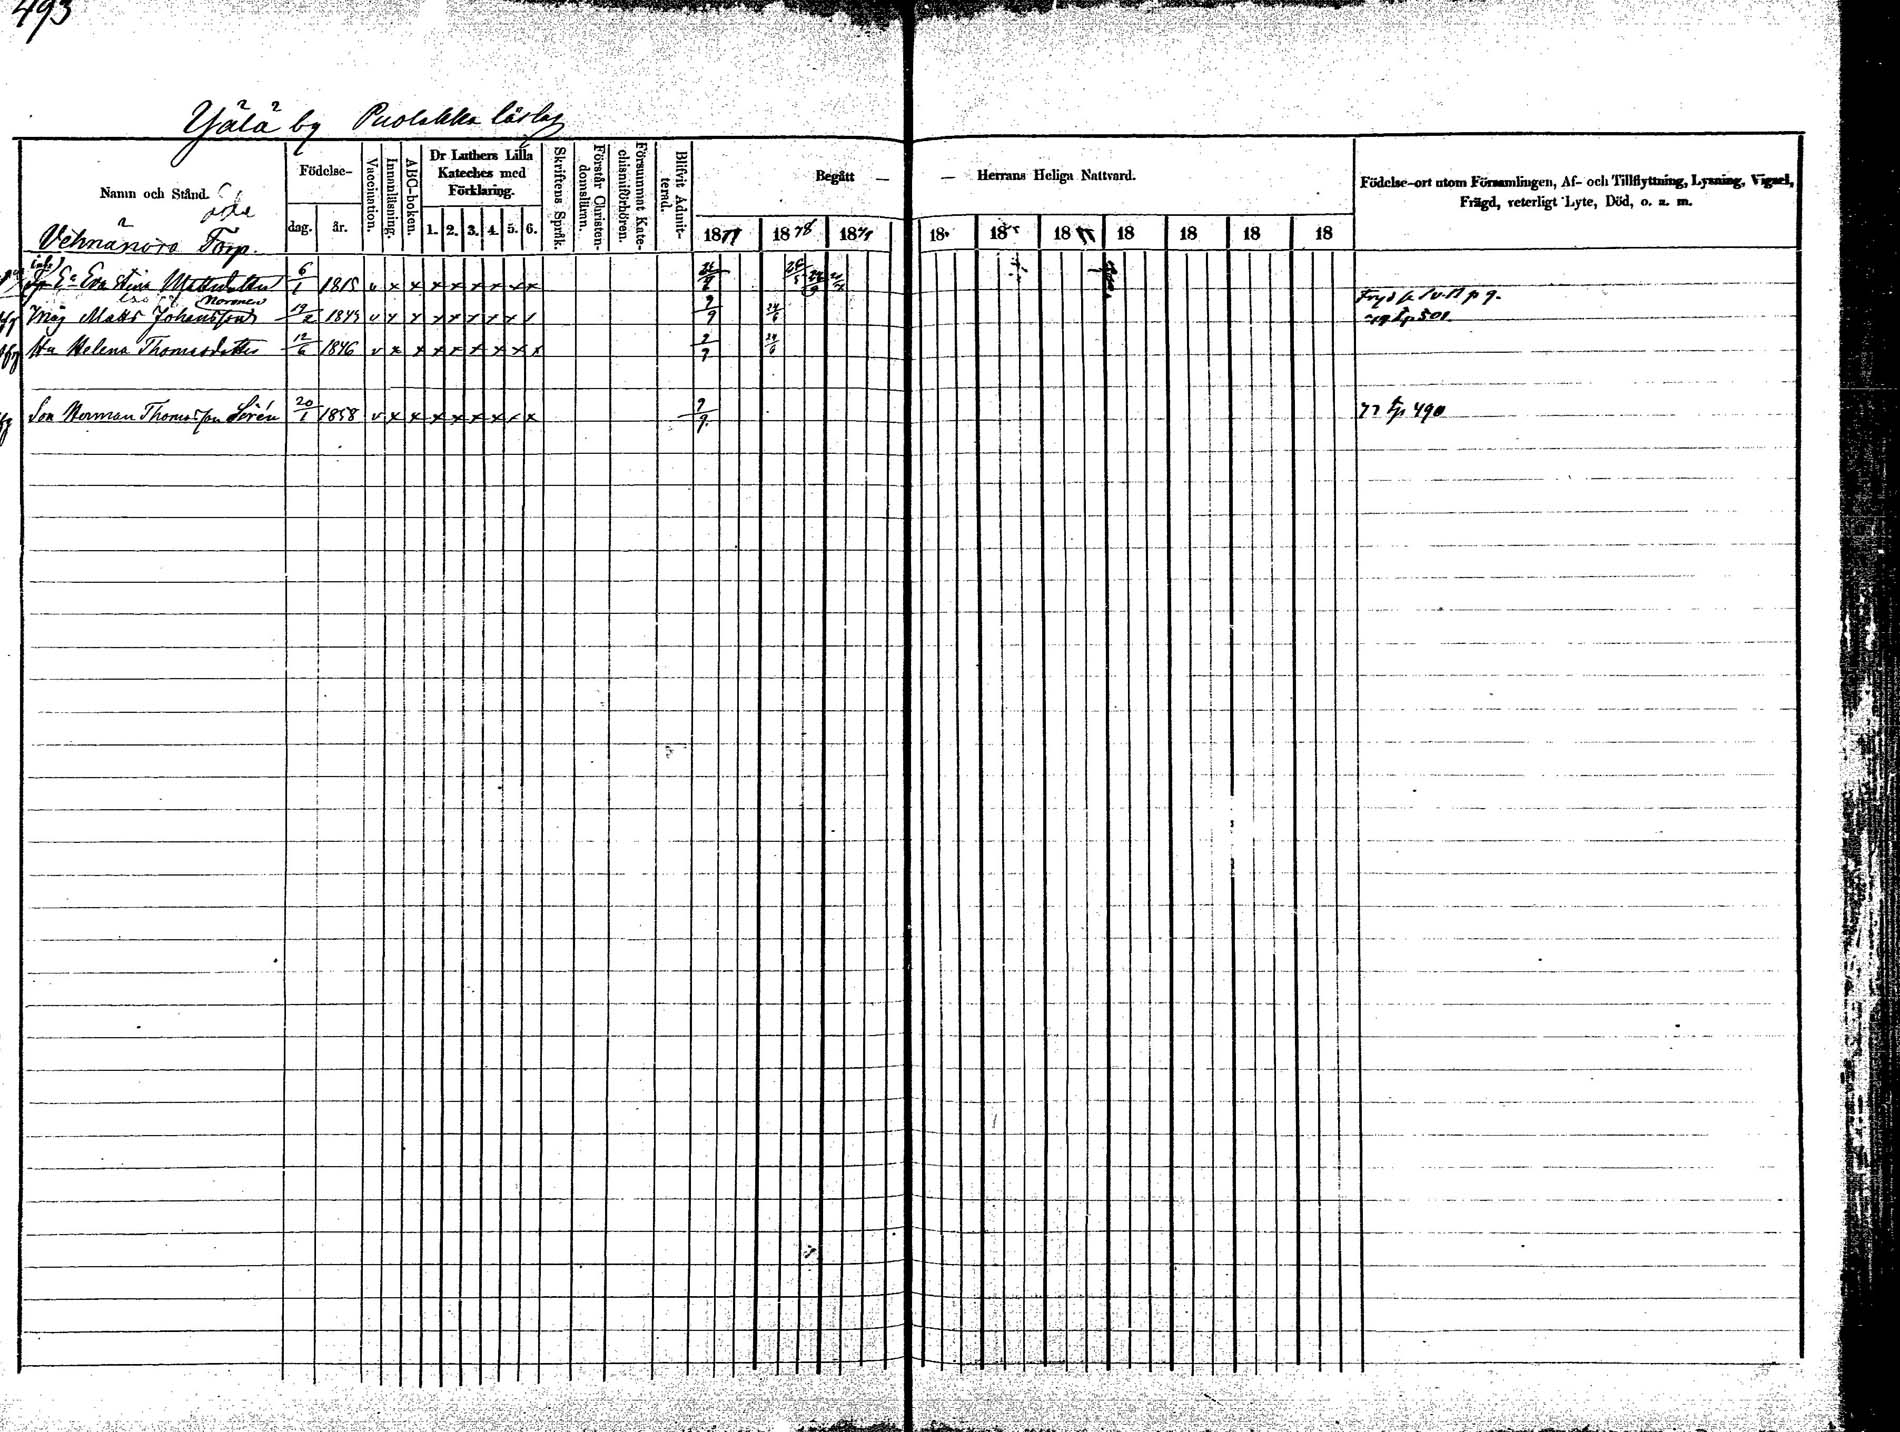 493
Yälä by Puolakka läslag
Namn och Stånd.
Födelse-
dag.
år.
Vaccination.
Innanläsning.
ABC-boken.
Dr Luthers Lilla
Kateches med
Förklaring.
1. 2. 3. 4. 5. 6.
Skriftens Språk.
Förstår Christen-
domsläran.
Försummat Kate-
chismiförhören.
Blifvit Admit-
terad.
Begått —
— Herrans Heliga Nattvard.
1877 1878 1879 18 18 18 18 18 18 18
Födelse-ort utom Församlingen, Af- och Tillflyttning, Lysning, Vigsel,
Frägd, veterligt Lyte, Död, o. a. m.
öde
Torp.
Eva Stina Mattsdotter 6/1 1815 v x x x x x x x x
Norrmen
Måg Matts Johansson 12/2 1849 v x x x x x x x 2/9 24/6
501.
Hu Helena Thomasdotter 12/6 1846 v x x x x x x x x 2/9 24/6
Son Herman Thomasson Sirén 20/1 1858 v x x x x x x x x 2/9
77 490